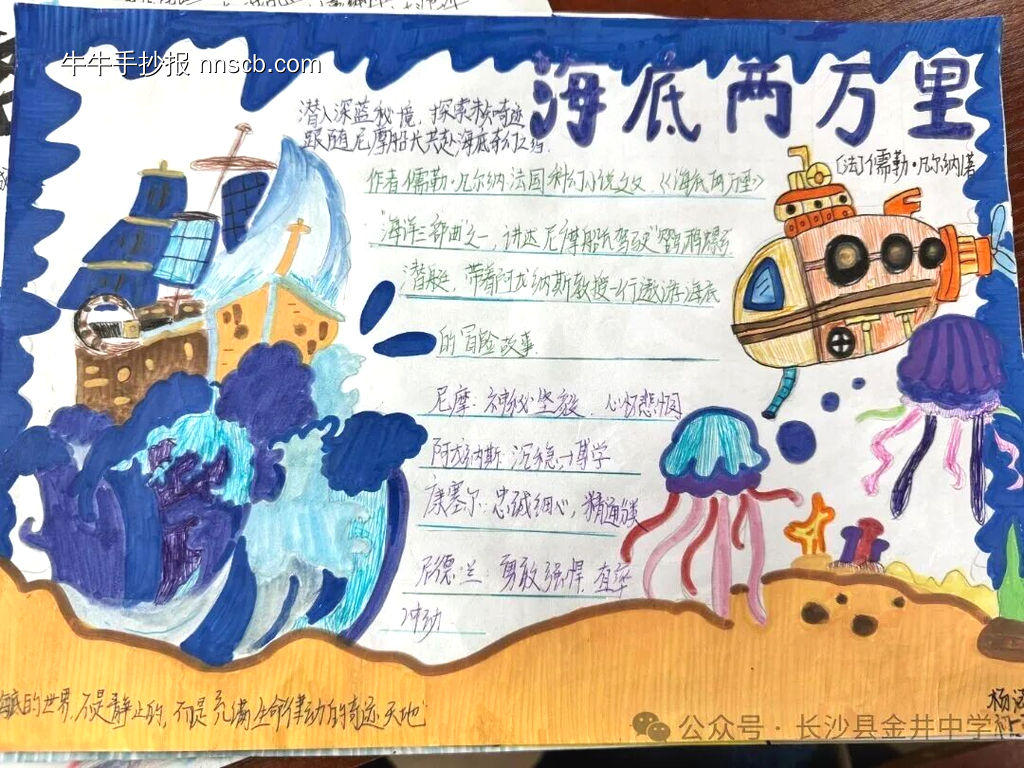 牛牛手抄报 nnscb.com
海底两万里
[法]儒勒·凡尔纳著
潜入深蓝秘境,探索未知奇迹
跟随尼摩船长共赴海底
作者儒勒·凡尔纳 法国科幻小说之父,《海底两万里》
"海洋三部曲"之一,讲述尼摩船长驾驶"鹦鹉螺号"
潜艇,带着阿龙纳斯教授一行遨游海底
的冒险故事.
尼摩:神秘坚毅、心怀悲悯
阿龙纳斯:沉稳博学
康塞尔:忠诚细心,精通分类
尼德·兰:勇敢强悍,直率
冲动
海底的世界,不是静止的,而是充满生命律动的奇迹天地
杨
公众号·长沙县金井中学